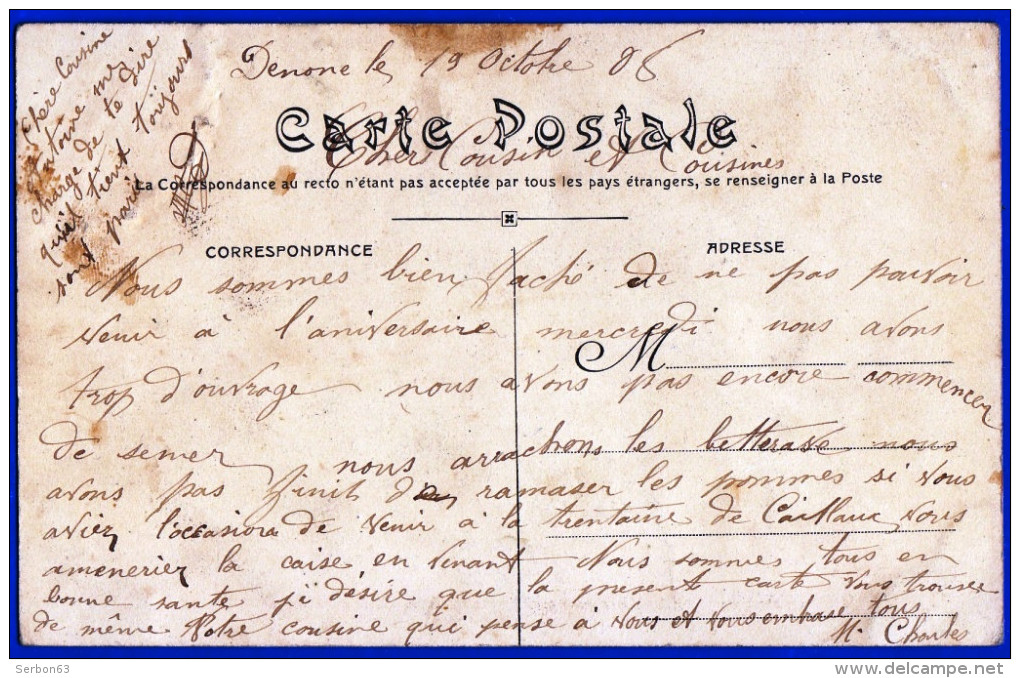 Chère Cousine
Antoine me
charge de te dire
qu'il tient toujours
sont parit
Denone le 19 Octobre 06
Carte Postale
Chers Cousin et Cousines
La Correspondance au recto n'étant pas acceptée par tous les pays étrangers, se renseigner à la Poste
CORRESPONDANCE
ADRESSE
Nous sommes bien faché de ne pas pouvoir
venir à l'aniversaire mercredi nous avons
M
trop d'ouvrage nous avons pas encore commencer
de semer nous arrachons les betterave nous
avons pas finit de ramaser les pommes si vous
aviez l'occasion de venir à la trentaine de Caillaux vous
amenerier la caise en venant Nous sommes tous en
bonne sante ji désire que la present carte vous trouve
de même Votre cousine qui pense à vous et vous embrase tous
M. Charles
Serbon63
delcampe.net